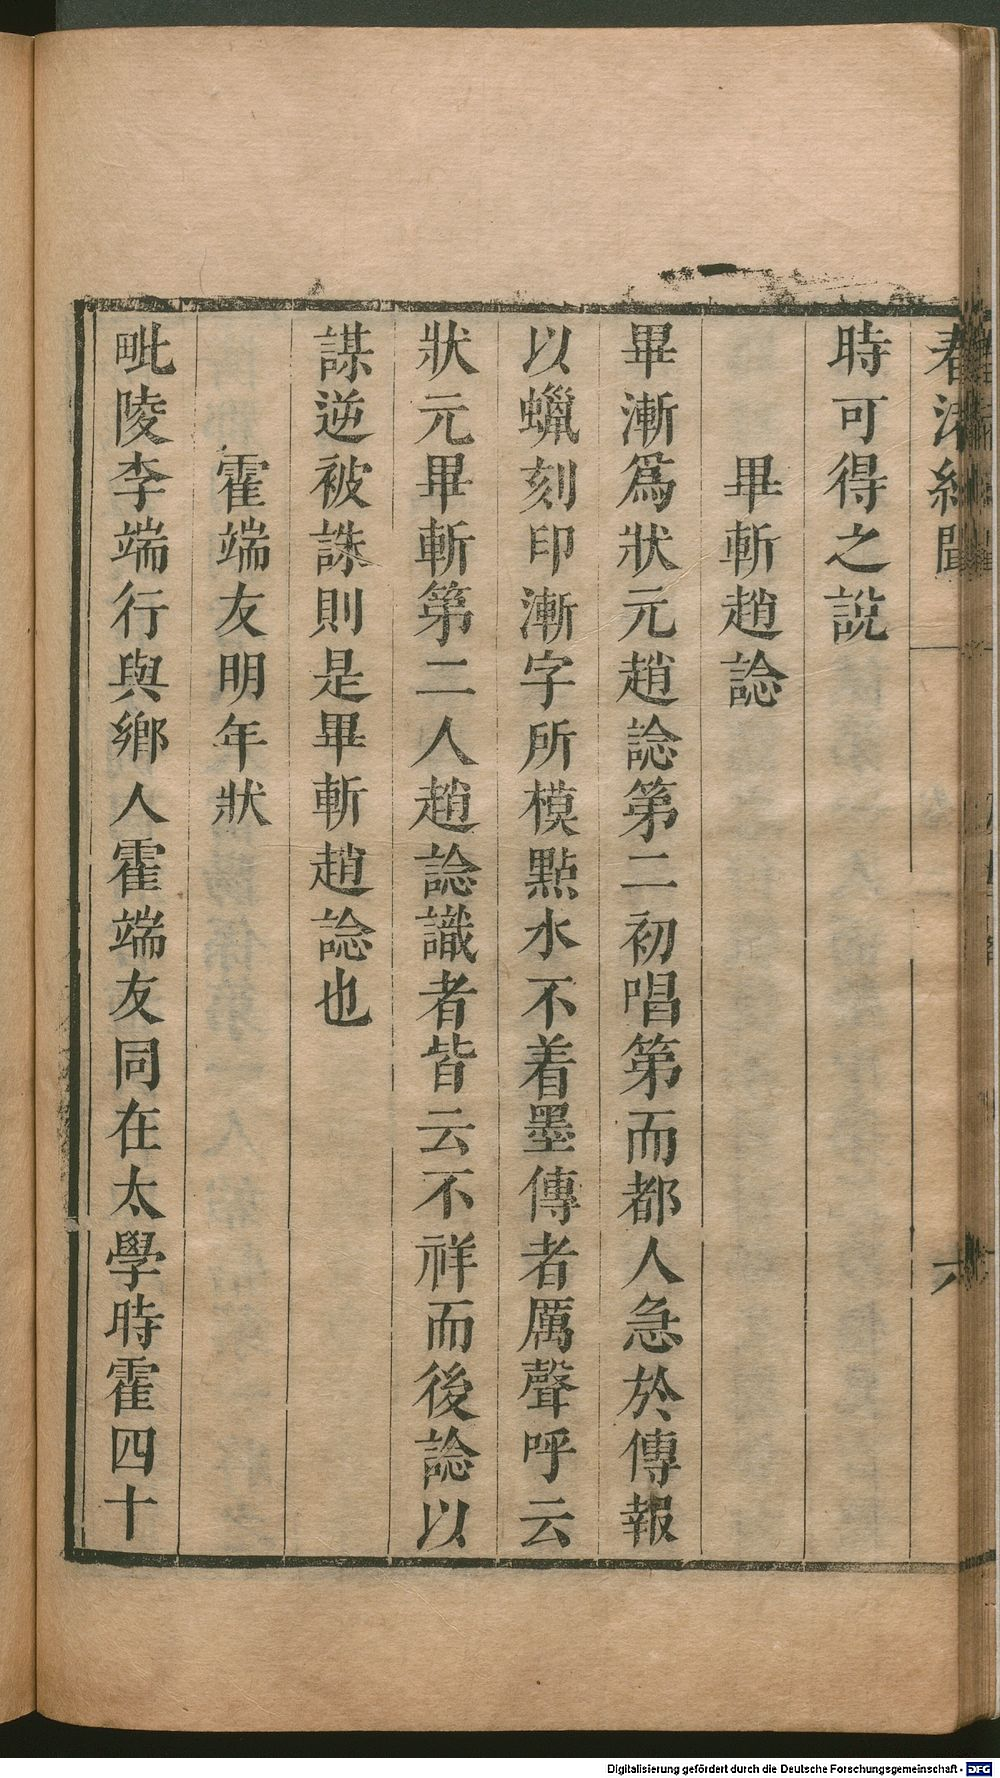 時可得之說
畢斬趙諗
畢漸爲狀元趙諗第二初唱第而都人急於傳報
以蠟刻印漸字所模點水不着墨傳者厲聲呼云
狀元畢斬第二人趙諗識者皆云不祥而後諗以
謀逆被誅則是畢斬趙諗也
霍端友明年狀
毗陵李端行與鄉人霍端友同在太學時霍四十
六
Digitalisierung gefördert durch die Deutsche Forschungsgemeinschaft - DFG